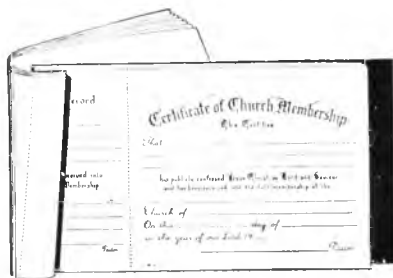 ecord
eceived into
Membership
Pastor
Certificate of Church Membership
This Certifies
That
has publicly confessed Jesus Christ as Lord and Saviour
and has been received into the full membership of the
Church of
On the day of
in the year of our Lord 19
Pastor